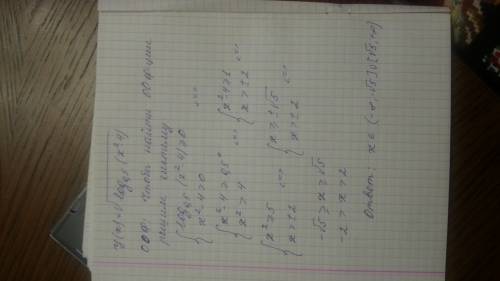 y(x)=√log₀,₅(x²-4)
ООФ: чтобы найти ООФ-ции
решим систему
{log₀,₅(x²-4)≥0
{x²-4>0 <=>
{x²-4≥0,5⁰
{x²>4 <=>
{x²-4≥1
{x>±2 <=>
{x²≥5
{x>±2 <=>
{x≥±√5
{x>±2 <=>
-√5≥x≥√5
-2>x>2
Ответ: x∈(-∞,-√5]∪[√5,+∞)